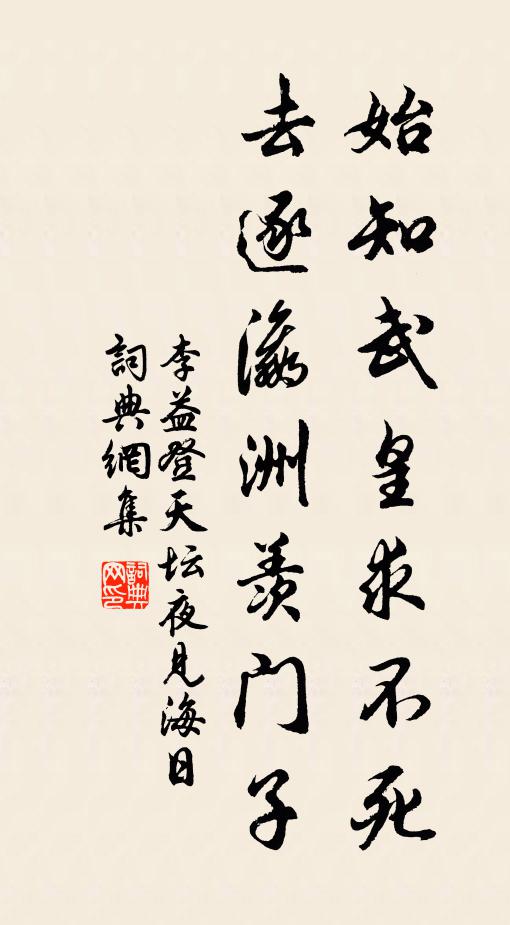 始知武皇求不死
去逐瀛洲羨门子
李益登天坛夜見海日
詞典網集
詞典网印